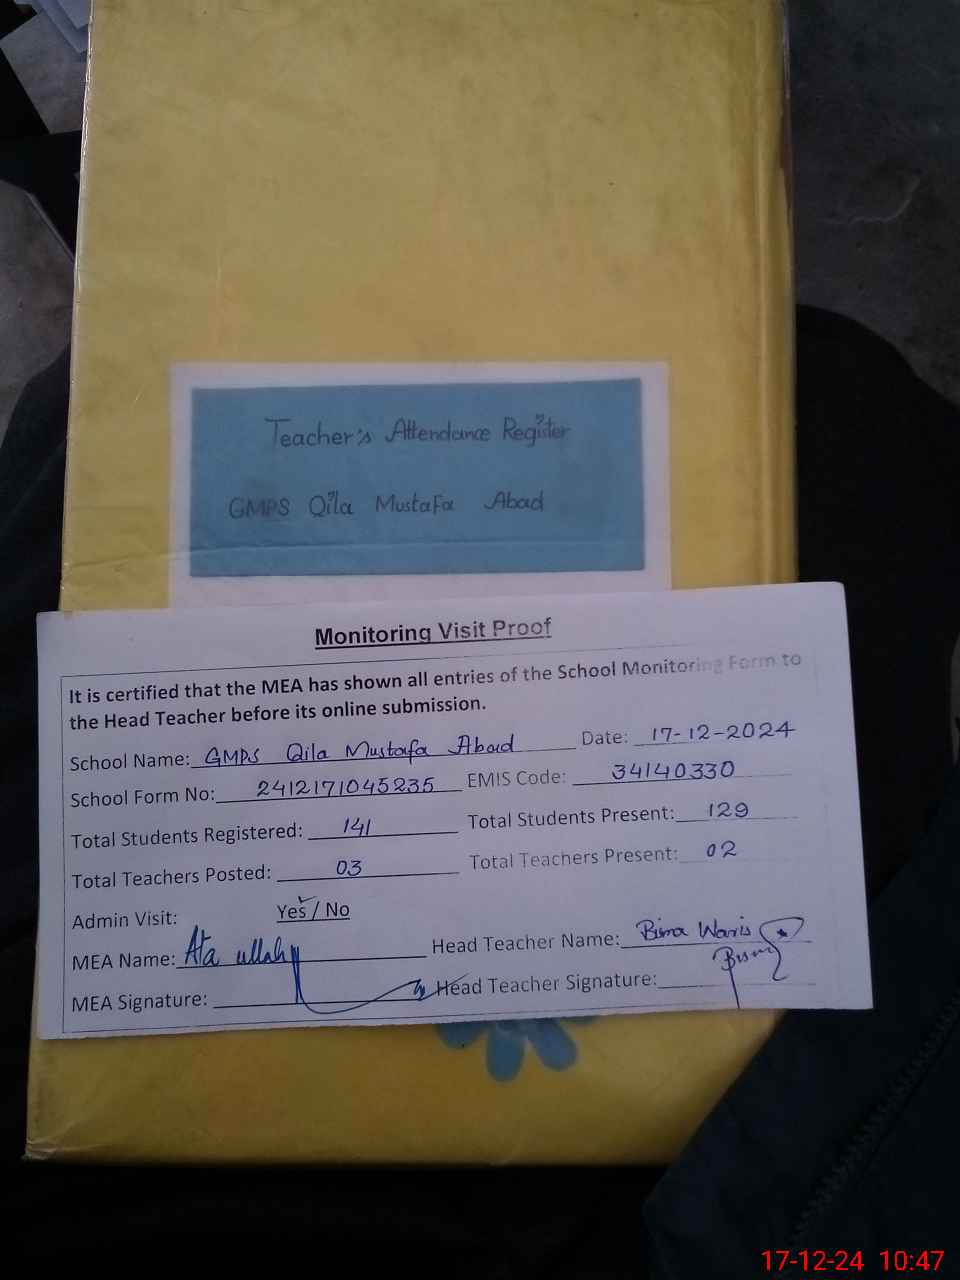 Teacher's Attendance Register
GMPS Qila Mustafa Abad
Monitoring Visit Proof
It is certified that the MEA has shown all entries of the School Monitoring Form to
the Head Teacher before its online submission.
School Name: GMPS Qila Mustafa Abad Date: 17-12-2024
School Form No: 2412171045235 EMIS Code: 34140330
Total Students Registered: 141 Total Students Present: 129
Total Teachers Posted: 03 Total Teachers Present: 02
Admin Visit: Yes / No
MEA Name: Ata ullah Head Teacher Name: Waris
MEA Signature: Head Teacher Signature:
17-12-24 10:47